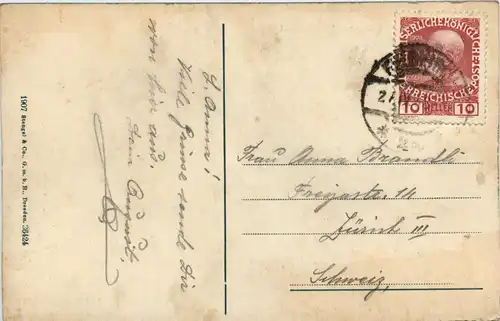 1907 Stengel & Co., G. m. b. H., Dresden. 38424
L. Anna!
Viele Grüsse sendt Dir
von hier aus,
Dein August.
KAISERLICHE KÖNIGLICHE ÖS
REICHISCHE
10 HELLER 10
Frau Anna Brandli
Freyastr. 14
Zürich III
Schweiz,